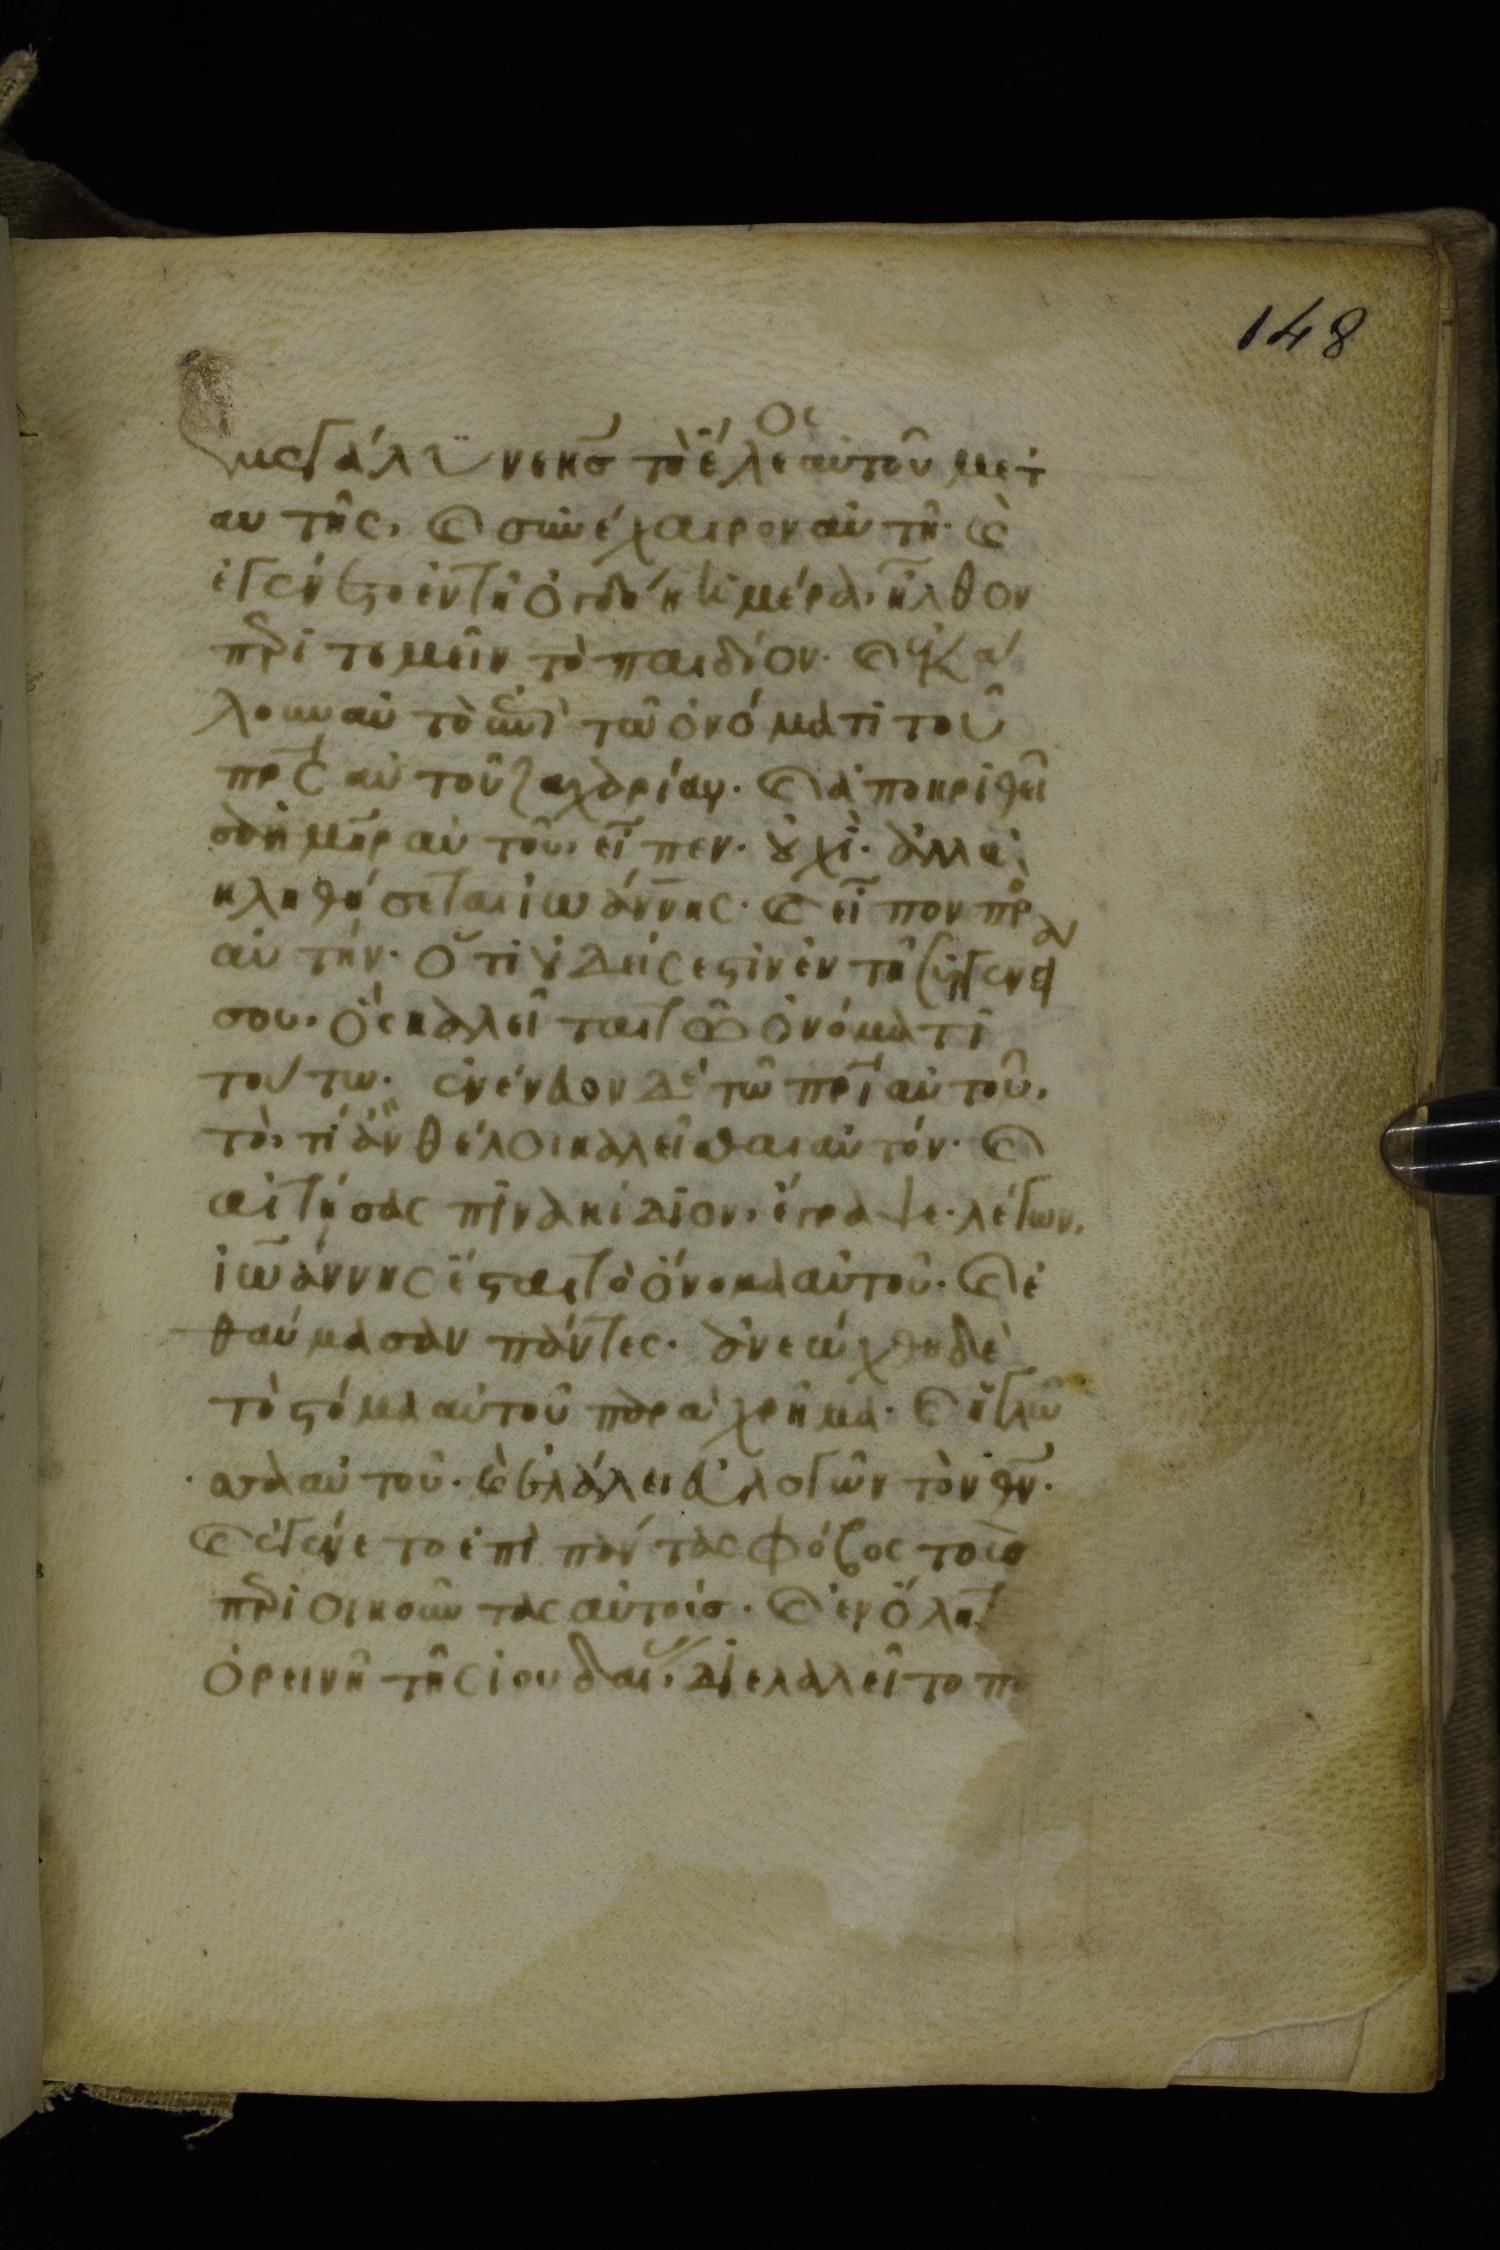 148
μεγάλϊνε κς τὸ ἔλεος αὐτοῦ μετ
αυτῆς, καὶ συνέχαιρον αὐτῆ· καὶ
ἐγένετο ἐν τῆ ὀγδόη ἡμέρα, ἦλθον
περιτεμεῖν τὸ παιδίον· καὶ ἐκά
λουν αὐτὸ ἐπὶ τῶ ὀνόματι τοῦ
πρς αὐτοῦ ζαχαρίαν· καὶ ἀποκριθεῖ
σα ἡ μηρ αὐτοῦ, εἶπεν· ȣχὶ· ἀλλὰ
κληθήσεται ἰωάννης· καὶ εἶπον πρ
αὐτήν· ὅτι ȣδείς ἐστιν ἐν τῆ συγγενεία
σου, ὃς καλεῖται τῶ ὀνόματι
τούτω· ἐνένευον δὲ τῶ πρι αὐτοῦ,
τὸ, τί ἂν θέλοι καλεῖσθαι αὐτόν· καὶ
αἰτήσας πινακίδιον, ἔγραψε λέγων,
ἰωάννης ἔσται τὸ ὄνομα αὐτοῦ· καὶ ἐ
θαύμασαν πάντες· ἀνεώχθη δὲ
τὸ στόμα αὐτοῦ παραχρῆμα· καὶ ἡ γλῶ
σσα αὐτοῦ· καὶ ἐλάλει εὐλογῶν τὸν θν·
καὶ ἐγένετο ἐπὶ πάντας φόβος τοὺσ
περιοικοῦντας αὐτοίσ· καὶ ἐν ὅλη τ
ὀρεινῆ τῆς ἰουδαίας, διελαλεῖτο πα